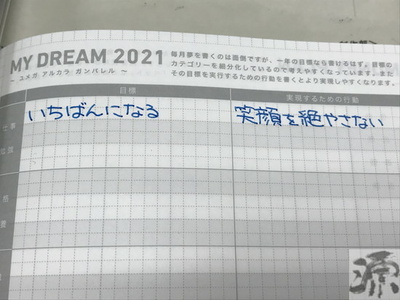 MY DREAM 2021
~ ユメガ アルカラ ガンバレル ~
毎月夢を書くのは面倒ですが、一年の目標なら書けるはず。目標の
カテゴリーを細分化しているので考えやすくなっています。また
その目標を実行するための行動を書くとより実現しやすくなります。
目標
実現するための行動
いちばんになる
笑顔を絶やさない
源